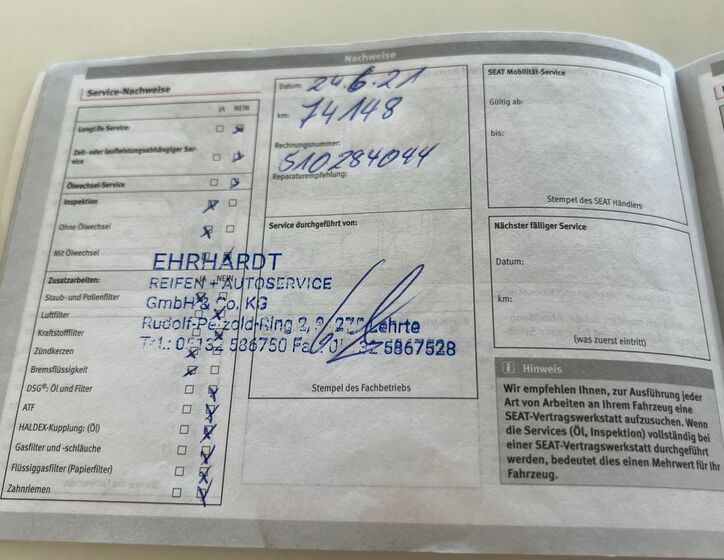 Nachweise
Service-Nachweise
JA NEIN
LongLife Service:
Zeit- oder laufleistungsabhängiger Ser-
vice
Ölwechsel-Service
Inspektion
Ohne Ölwechsel
Mit Ölwechsel
Zusatzarbeiten: JA NEIN
Staub- und Pollenfilter
Luftfilter
Kraftstofffilter
Zündkerzen
Bremsflüssigkeit
DSG®: Öl und Filter
ATF
HALDEX-Kupplung: (Öl)
Gasfilter und -schläuche
Flüssiggasfilter (Papierfilter)
Zahnriemen
Datum: 24.6.21
km: 74148
Rechnungsnummer:
510284044
Reparaturempfehlung:
Service durchgeführt von:
EHRHARDT
REIFEN + AUTOSERVICE
GmbH & Co. KG
Rudolf-Petzold-Ring 2, 275 Lehrte
586750 5867528
Stempel des Fachbetriebs
SEAT Mobilität-Service
Gültig ab:
bis:
Stempel des SEAT Händlers
Nächster fälliger Service
Datum:
km:
(was zuerst eintritt)
i Hinweis
Wir empfehlen Ihnen, zur Ausführung jeder
Art von Arbeiten an Ihrem Fahrzeug eine
SEAT-Vertragswerkstatt aufzusuchen. Wenn
die Services (Öl, Inspektion) vollständig bei
einer SEAT-Vertragswerkstatt durchgeführt
werden, bedeutet dies einen Mehrwert für Ihr
Fahrzeug.